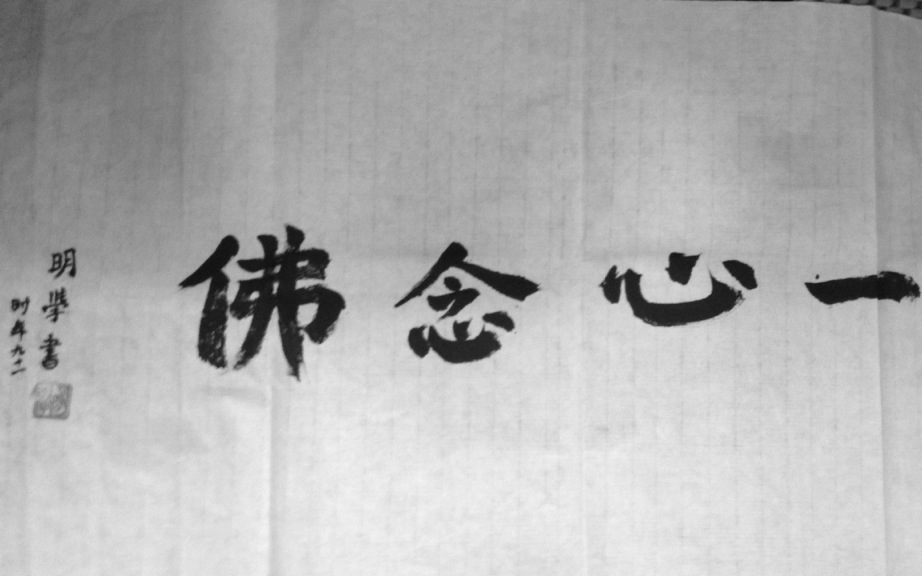 一心念佛
明學書
时年九二